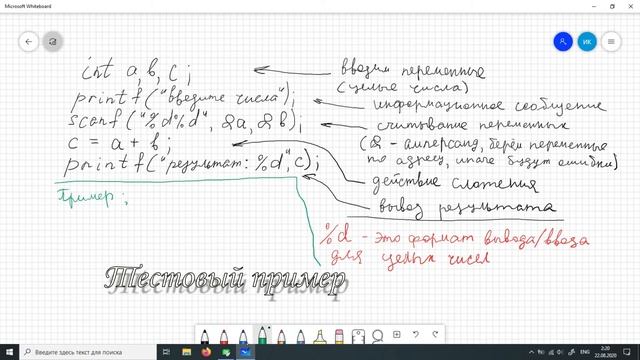 Microsoft Whiteboard
ИК
int a,b,c;
вводим переменные
(целые числа)
printf("введите числа");
информационное сообщение
scanf("%d%d", &a,&b);
считывание переменных
(& - амперсанд, берём переменные
по адресу, иначе будут ошибки)
c = a + b;
действие сложения
printf("результат: %d",c);
вывод результата
Пример:
%d - это формат вывода/ввода
для целых чисел
Тестовый пример
Введите здесь текст для поиска
ENG
2:20
22.08.2020